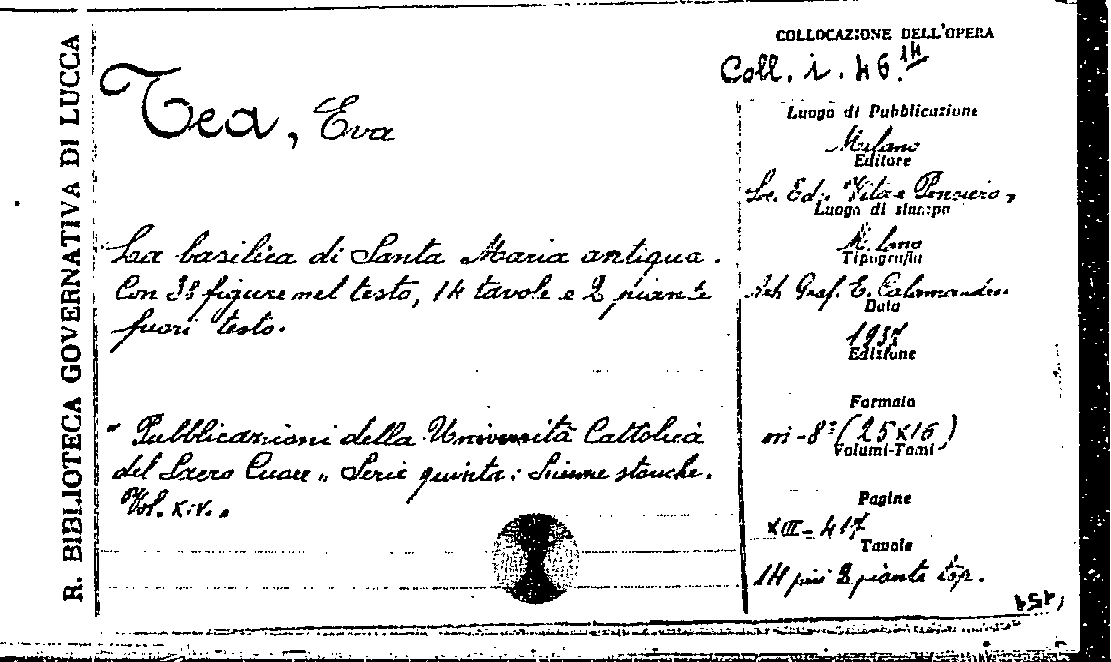 R. BIBLIOTECA GOVERNATIVA DI LUCCA
Tea, Eva
La basilica di Santa Maria antiqua.
Con 38 figure nel testo, 14 tavole e 2 piante
fuori testo.
" Pubblicazioni della Università Cattolica
del Sacro Cuore " Serie quinta: Scienze storiche.
Vol. XIV. "
COLLOCAZIONE DELL'OPERA
Coll. i. 46.14
Luogo di Pubblicazione
Milano
Editore
Soc. Ed. Vita e Pensiero,
Luogo di stampa
Milano
Tipografia
Graf. E. Calamandrei
Data
1937
Edizione
Formato
in-8° (25x16)
Volumi-Tomi
Pagine
XIII-417
Tavole
14 più 2 piante top.